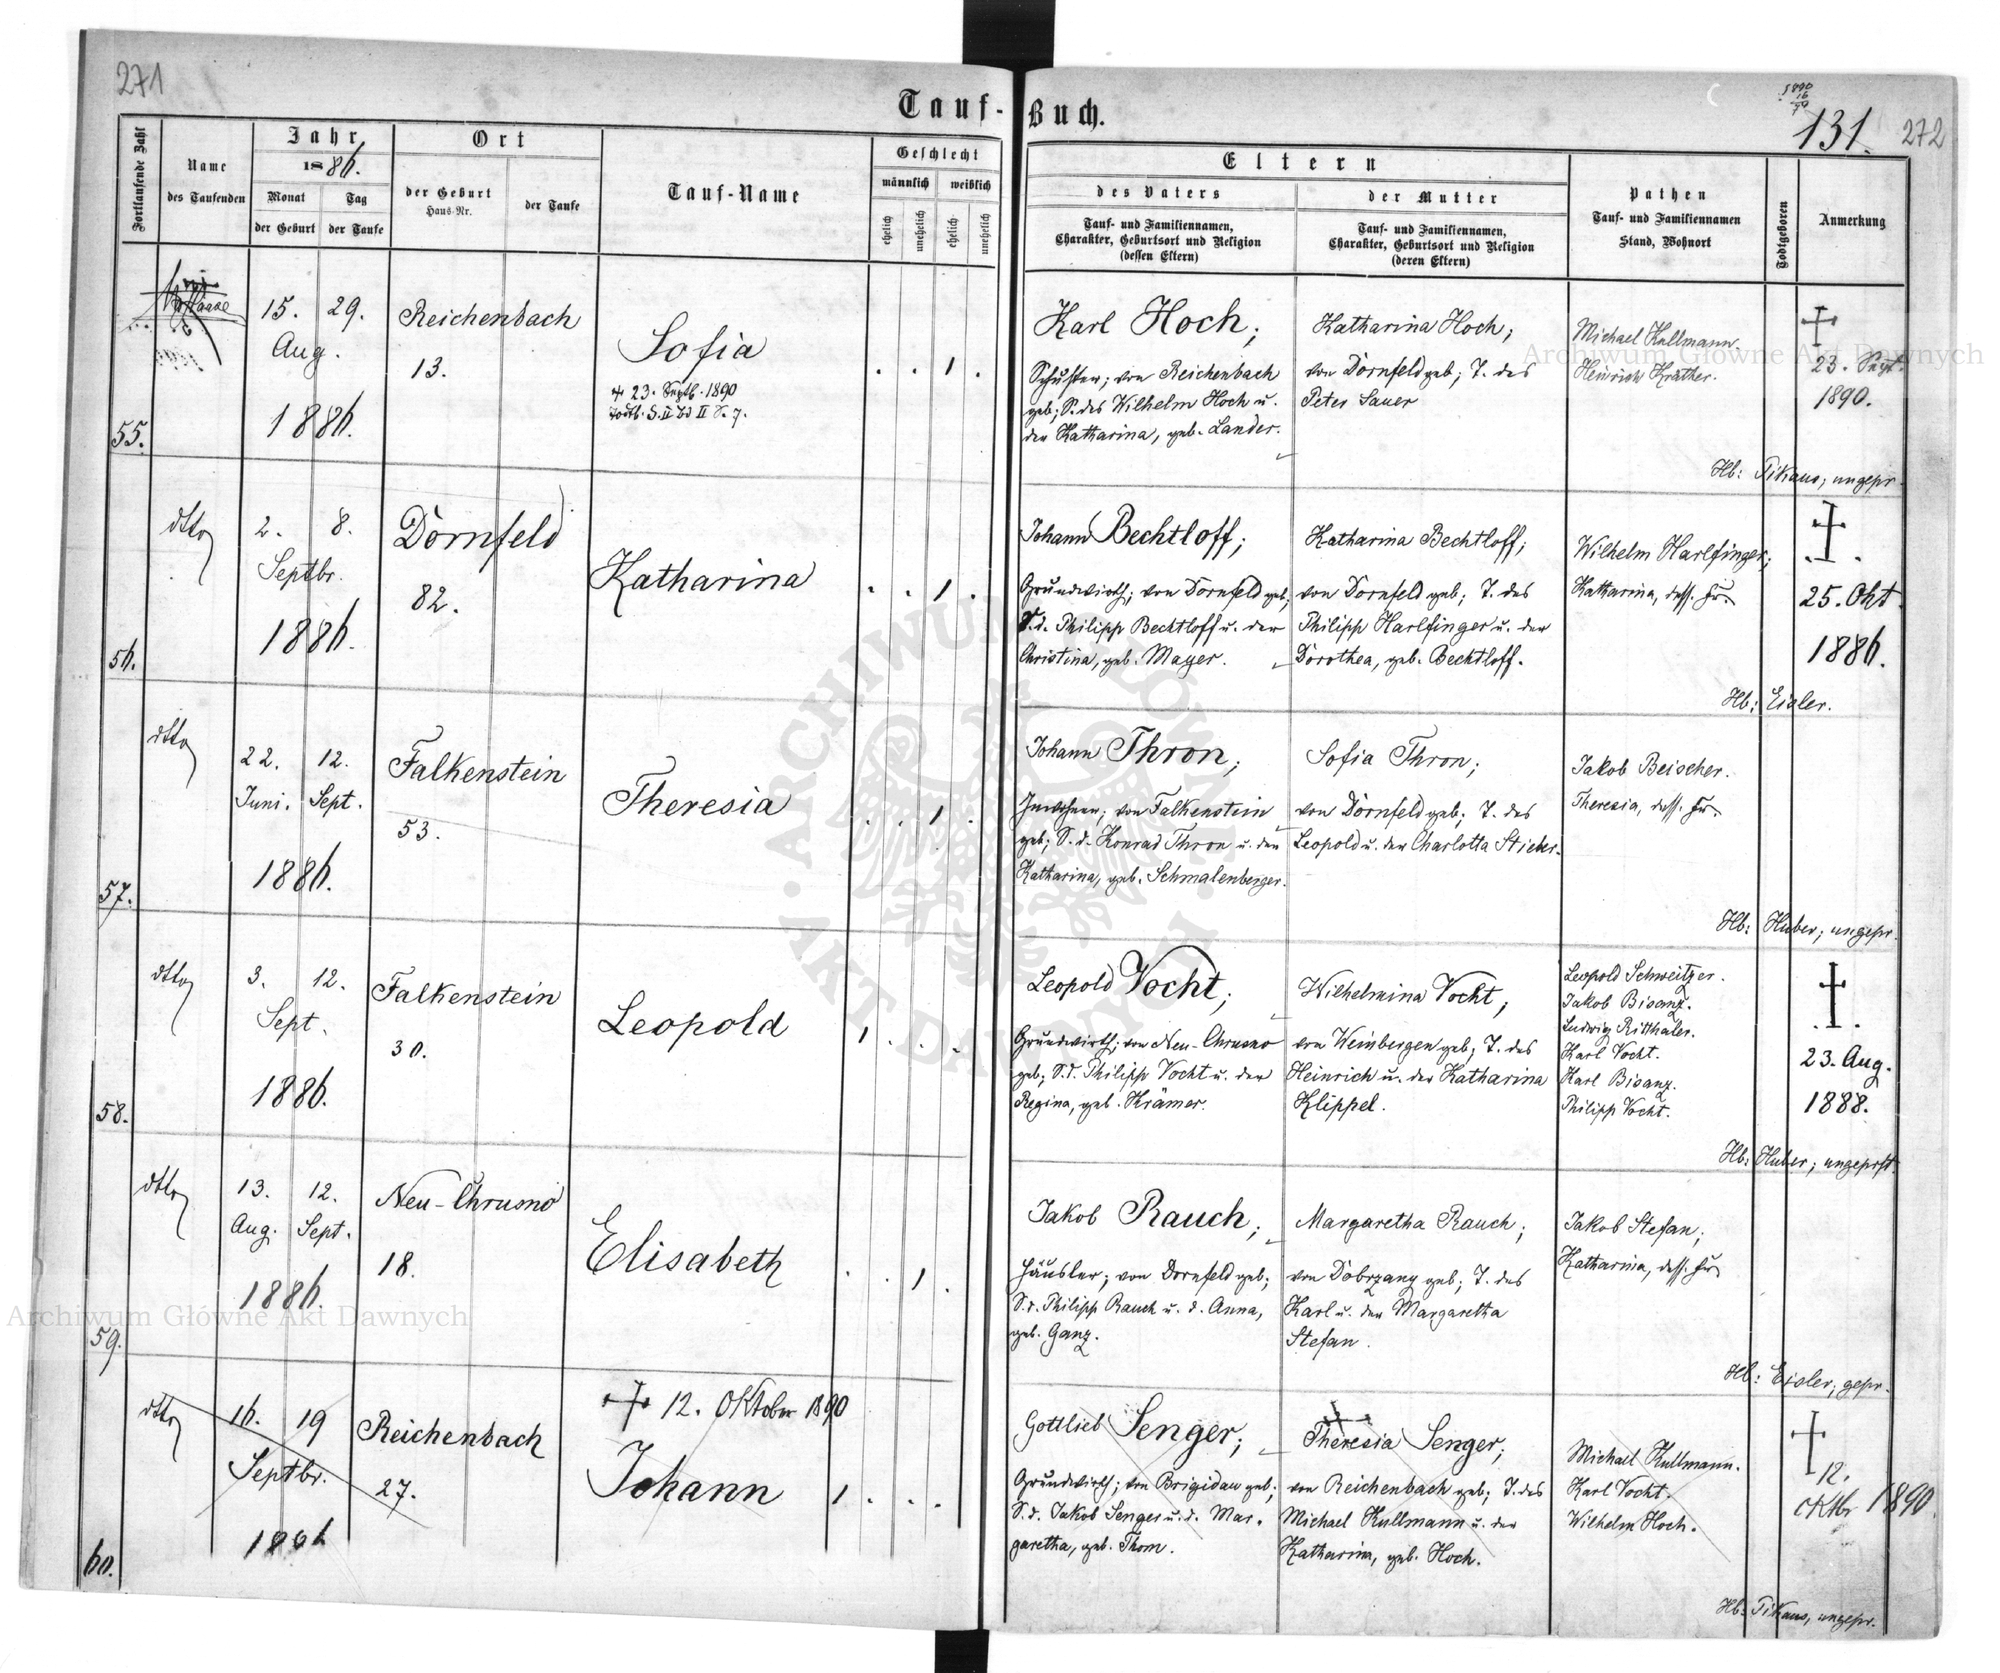 271
Tauf-Buch.
131.
272
Fortlaufende Zahl
Name
des Taufenden
Jahr
1886.
Monat
Tag
der Geburt
der Taufe
Ort
der Geburt
Haus-Nr.
der Taufe
Tauf-Name
Geschlecht
männlich
weiblich
ehelich
unehelich
ehelich
unehelich
Eltern
des Vaters
Tauf- und Familiennamen,
Charakter, Geburtsort und Religion
(dessen Eltern)
der Mutter
Tauf- und Familiennamen,
Charakter, Geburtsort und Religion
(deren Eltern)
Pathen
Tauf- und Familiennamen
Stand, Wohnort
Todtgeboren
Anmerkung
55.
15. 29.
Aug.
1886.
Reichenbach
13.
Sofia
+ 23. Septb. 1890
. . 1 .
Karl Hoch;
Schuster; von Reichenbach
geb; S. des Wilhelm Hoch u.
der Katharina, geb. Lander.
Katharina Hoch;
von Dornfeld geb; T. des
Peter Sauer
Michael Kullmann.
Heinrich Kräther.
23. Sept.
1890.
Hb: Pikaus, ungepr.
56.
dtto
2. 8.
Septbr.
1886.
Dornfeld
82.
Katharina
. . 1 .
Johann Bechtloff;
Grundwirth; von Dornfeld geb;
S. d. Philipp Bechtloff u. der
Christina, geb. Mayer.
Katharina Bechtloff;
von Dornfeld geb; T. des
Philipp Harlfinger u. der
Dorothea, geb. Bechtloff.
Wilhelm Harlfinger;
Katharina, dess. Fr.
25. Okt.
1886.
Hb: Eisler.
57.
dtto
22. 12.
Juni. Sept.
1886.
Falkenstein
53.
Theresia
. . 1 .
Johann Thron;
Inwohner; von Falkenstein
geb; S. d. Konrad Thron u. der
Katharina, geb. Schmalenberger.
Sofia Thron;
von Dornfeld geb; T. des
Leopold u. der Charlotta Stieber.
Jakob Beischer.
Theresia, dess. Fr.
Hb: Huber; ungepr.
58.
dtto
3. 12.
Sept.
1886.
Falkenstein
30.
Leopold
1 . . .
Leopold Vocht;
Grundwirth; von Neu-Chrusno
geb; S. d. Philipp Vocht u. der
Regina, geb. Krämer.
Wilhelmina Vocht;
von Weinbergen geb; T. des
Heinrich u. der Katharina
Klippel.
Leopold Schweitzer.
Jakob Bisanz.
Ludwig Ritthaler.
Karl Vocht.
Karl Bisanz.
Philipp Vocht.
23. Aug.
1888.
Hb: Huber; ungeprft.
59.
dtto
13. 12.
Aug. Sept.
1886.
Neu-Chrusno
18.
Elisabeth
. . 1 .
Jakob Rauch;
Häusler; von Dornfeld geb;
S. d. Philipp Rauch u. d. Anna,
geb. Ganz.
Margaretha Rauch;
von Dobrzany geb; T. des
Karl u. der Margaretha
Stefan.
Jakob Stefan;
Katharina, dess. Fr.
Hb: Eisler; gepr.
60.
dtto
16. 19
Septbr.
1886
Reichenbach
27.
+ 12. Oktober 1890
Johann
1 . . .
Gottlieb Senger;
Grundwirth; von Brigidau geb;
S. d. Jakob Senger u. d. Mar-
garetha, geb. Thom.
Theresia Senger;
von Reichenbach geb; T. des
Michael Kullmann u. der
Katharina, geb. Hoch.
Michael Kullmann.
Karl Vocht.
Wilhelm Hoch.
12.
Oktbr 1890.
Hb: Pikaus, ungepr.
Archiwum Główne Akt Dawnych
Archiwum Główne Akt Dawnych